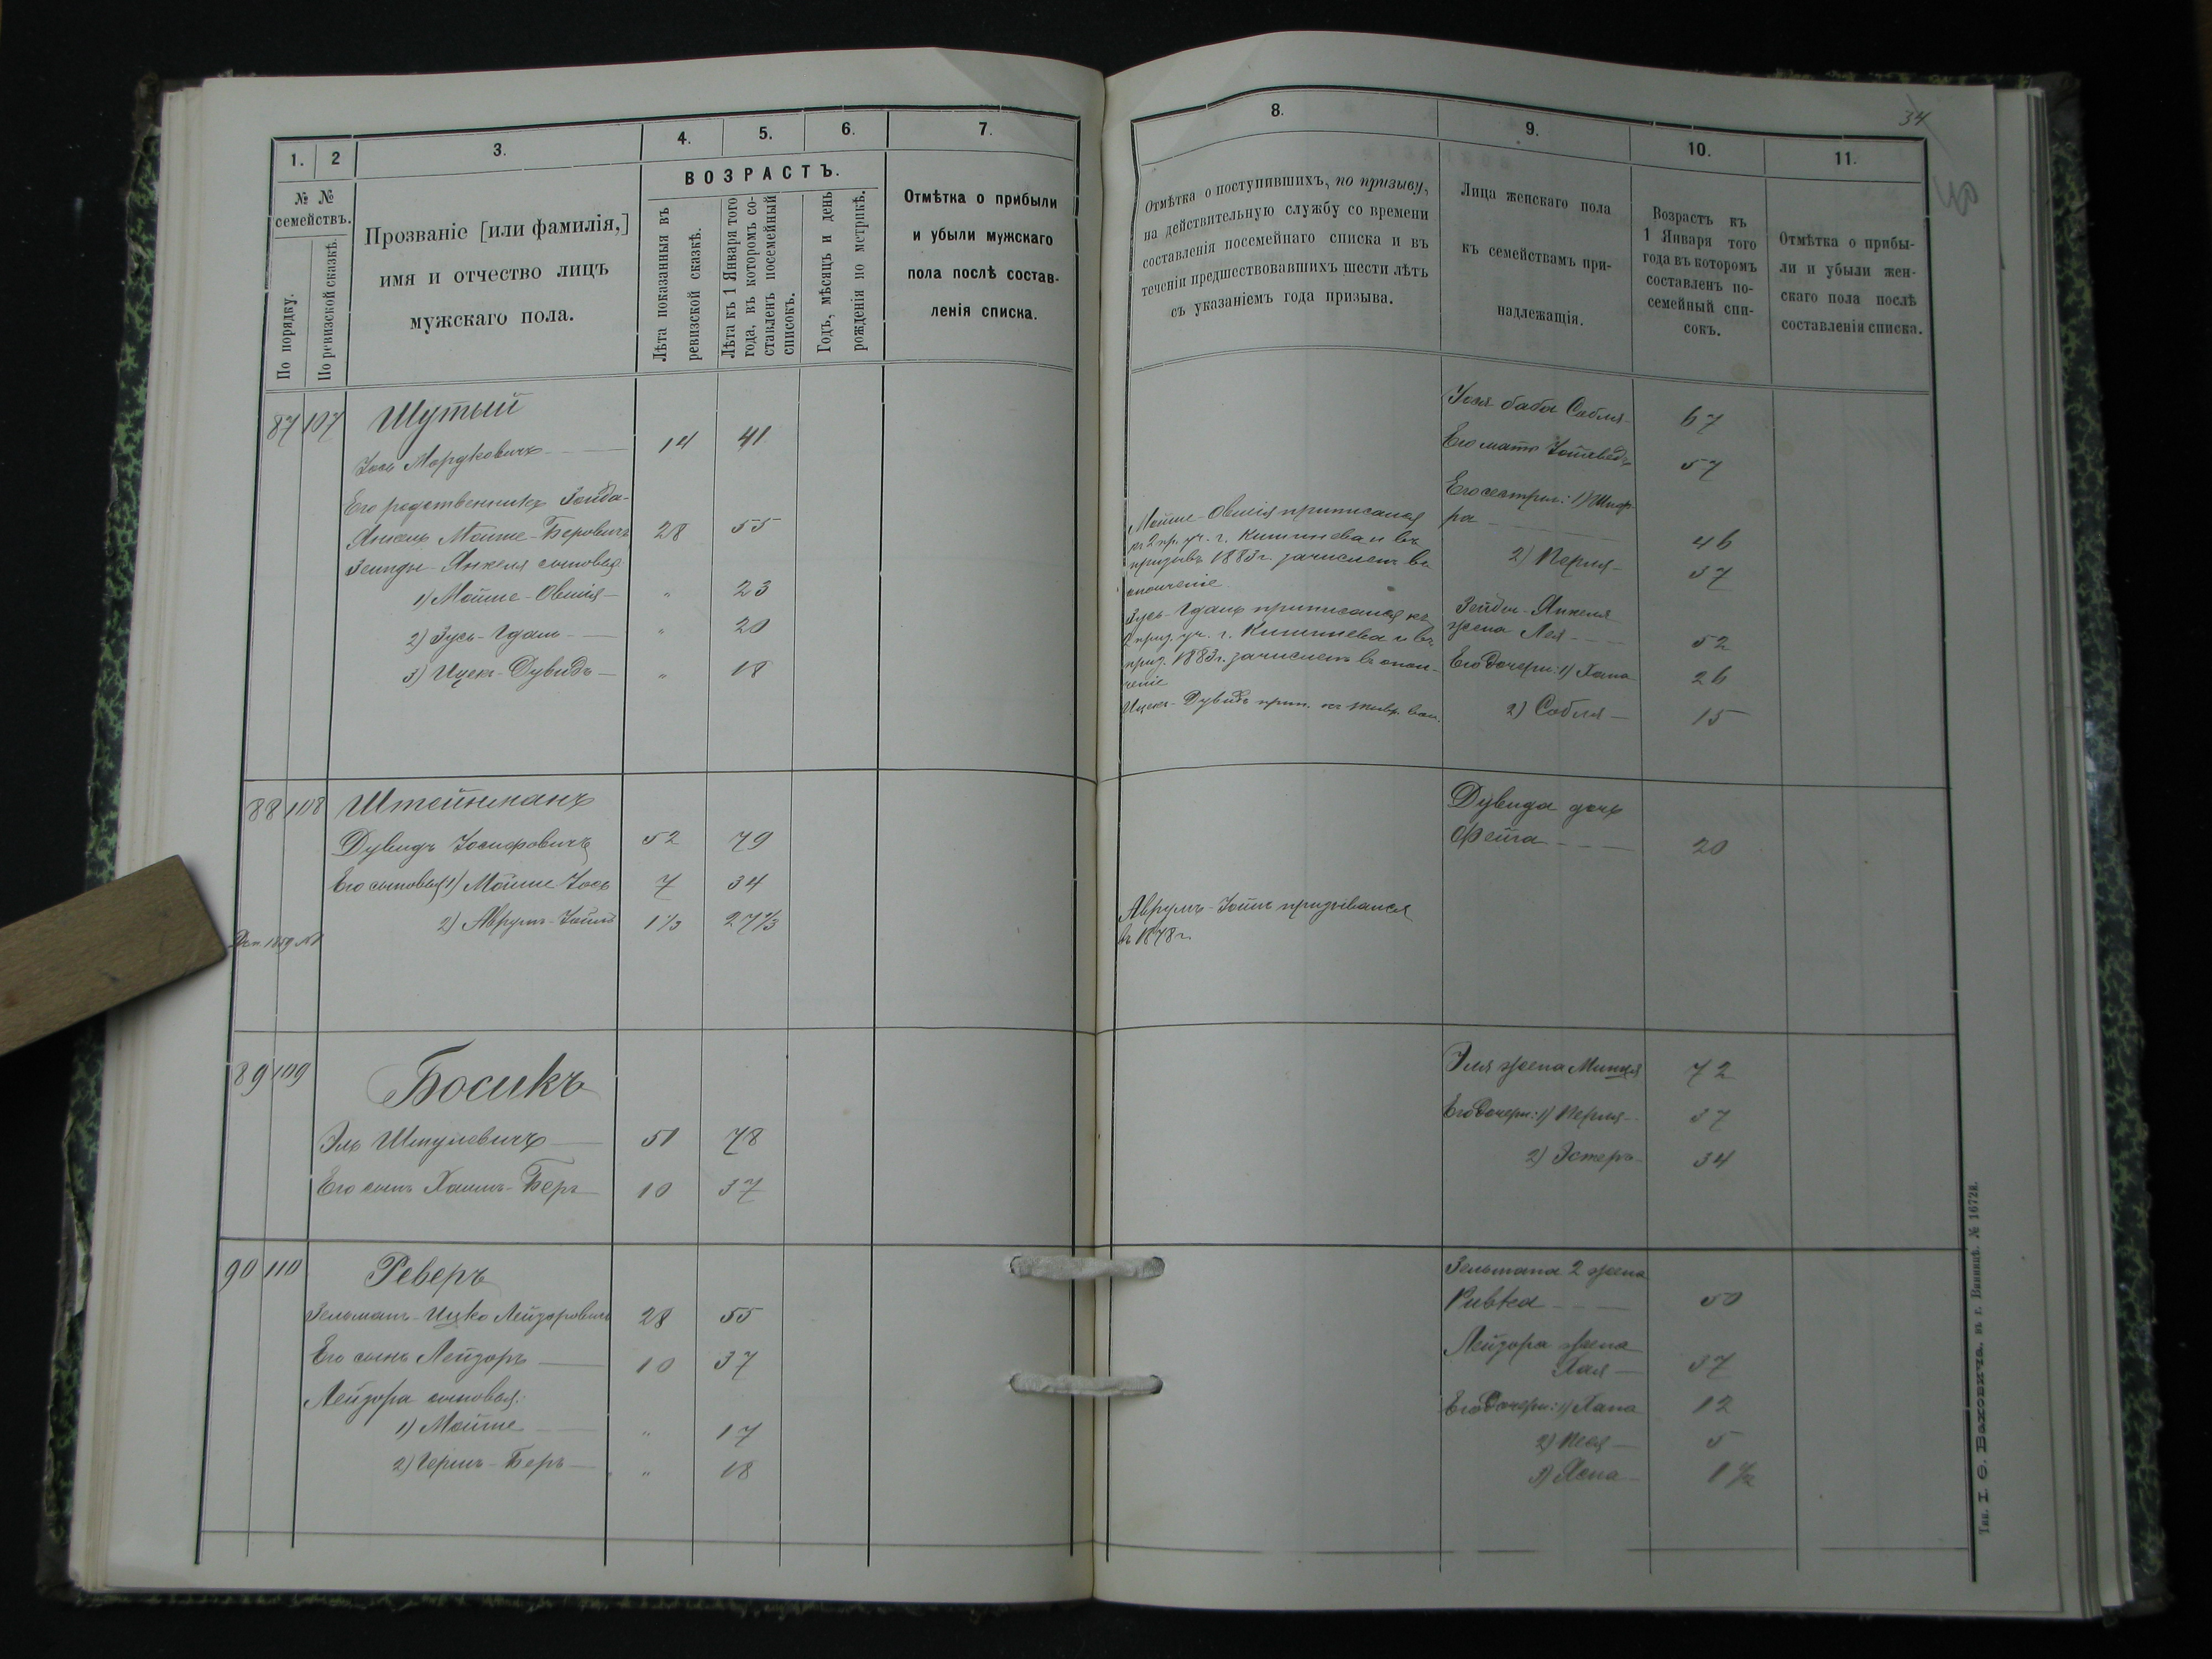 34
1.
2
3.
4.
5.
6.
7.
№ №
семействъ.
По порядку.
По ревизской сказкѣ.
Прозваніе [или фамилія,]
имя и отчество лицъ
мужскаго пола.
ВОЗРАСТЪ.
Лѣта показанныя въ
ревизской сказкѣ.
Лѣта къ 1 Января того
года, въ которомъ со-
ставленъ посемейный
списокъ.
Годъ, мѣсяцъ и день
рожденія по метрикѣ.
Отмѣтка о прибыли
и убыли мужскаго
пола послѣ состав-
ленія списка.
87 107 Шутый
Іось Мордковичъ 14 41
Его родственникъ Зейда-
Янкель Мойше-Беровичъ 28 55
Зейды-Янкеля сыновья
1) Мойше-Овшія „ 23
2) Зусь-Идаль „ 20
3) Ицекъ-Дувидъ „ 18
88 108 Штейнманъ
Дувидъ Іосифовичъ 52 79
Его сыновья 1) Мойше Іось 7 34
2) Аврумъ-Іойль 1 1/3 27 1/3
1859 №1
89 109 Босикъ
Эль Шмулевичъ 51 78
Его сынъ Хаимъ-Беръ 10 37
90 110 Реверъ
Зельманъ-Ицко Лейзоровичъ 28 55
Его сынъ Лейзоръ 10 37
Лейзора сыновья:
1) Мойше „ 17
2) Гершъ-Беръ „ 18
8.
9.
10.
11.
Отмѣтка о поступившихъ, по призыву,
на дѣйствительную службу со времени
составленія посемейнаго списка и въ
теченіи предшествовавшихъ шести лѣтъ
съ указаніемъ года призыва.
Лица женскаго пола
къ семействамъ при-
надлежащія.
Возрастъ къ
1 Января того
года въ которомъ
составленъ по-
семейный спи-
сокъ.
Отмѣтка о прибы-
ли и убыли жен-
скаго пола послѣ
составленія списка.
Іося баба Собля 67
Его мать 57
Его сестры: 1) Шиф-
ра 46
2) Перля 37
Мойше-Овшія приписался
къ 2 пр. уч. г. Кишинева и въ
призывъ 1883 г. зачисленъ въ
ополченіе
Зусь-Идаль приписался къ
2 приз. уч. г. Кишинева и въ
приз. 1883 г. зачисленъ въ опол-
ченіе
Ицекъ-Дувидъ прип. къ
Зейды-Янкеля
жена Лея 52
Его дочери: 1) Хана 26
2) Собля 15
Дувида дочь
Фейга 20
Аврумъ-Іойль призывался
въ 1878 г.
Эля жена 72
Его дочери: 1) Перля 37
2) Эстеръ 34
Зельмана 2 жена
Ривка 50
Лейзора жена
Хая 37
Его дочери: 1) Хана 12
2) 5
3) 1 1/2
Тип. І. Ѳ. Баховича. въ г. Винницѣ. № 16728.